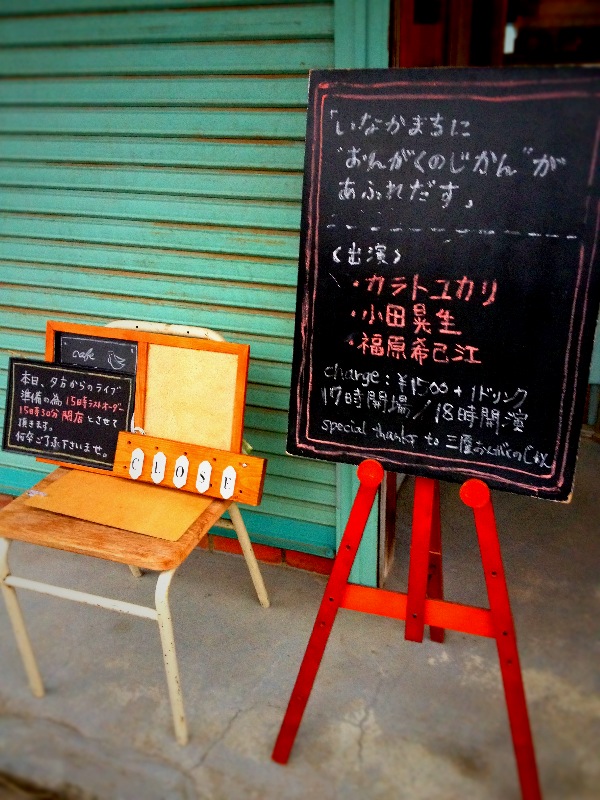 「いなかまちに
"おんがくのじかん"が
あふれだす」
〈出演〉
・カラトユカリ
・小田晃生
・福原希己江
charge:¥1500+1ドリンク
17時開場/18時開演
special thanks to 三鷹おんがくのじかん
cafe
本日、夕方からのライブ
準備の為15時ラストオーダー
15時30分閉店とさせて
頂きます。
何卒ご了承下さいませ。
CLOSE